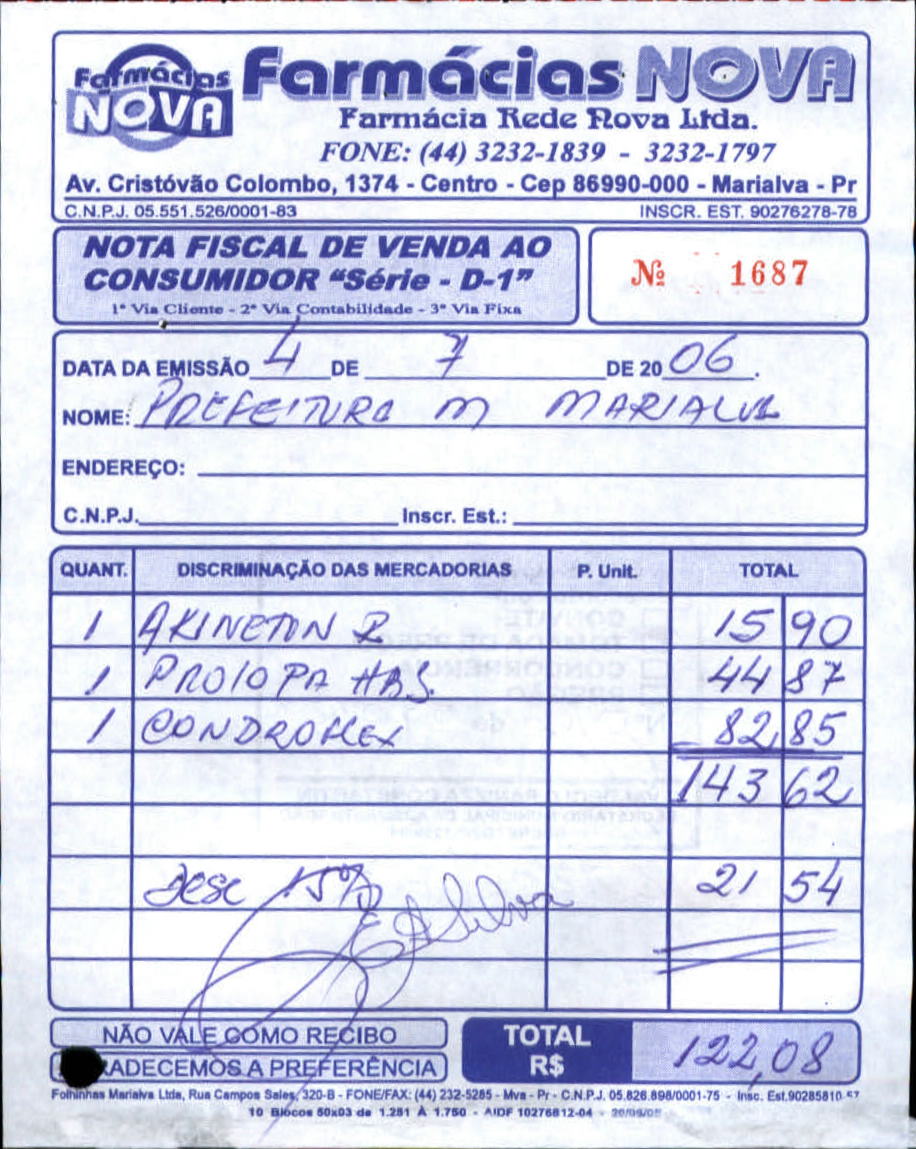 Farmácias NOVA
Farmácias NOVA
Farmácia Rede Nova Ltda.
FONE: (44) 3232-1839 - 3232-1797
Av. Cristóvão Colombo, 1374 - Centro - Cep 86990-000 - Marialva - Pr
C.N.P.J. 05.551.526/0001-83 INSCR. EST. 90276278-78
NOTA FISCAL DE VENDA AO
CONSUMIDOR "Série - D-1"
1ª Via Cliente - 2ª Via Contabilidade - 3ª Via Fixa
Nº 1687
DATA DA EMISSÃO 4 DE 7 DE 20 06.
NOME: PREFEITURA M MARIALVA
ENDEREÇO:
C.N.P.J. Inscr. Est.:
QUANT. DISCRIMINAÇÃO DAS MERCADORIAS P. Unit. TOTAL
1 AKINETON R 15 90
1 PROLOPA HBS. 44 87
1 CONDROFLEX 82,85
143 62
Desc 15% 21 54
EASilva
NÃO VALE COMO RECIBO
RADECEMOS A PREFERÊNCIA
TOTAL R$ 122,08
Folhinhas Marialva Ltda, Rua Campos Sales, 320-B - FONE/FAX: (44) 232-5285 - Mva - Pr - C.N.P.J. 05.826.898/0001-75 - Insc. Est.90285810-57
10 Blocos 50x03 de 1.251 À 1.750 - AIDF 10276812-04